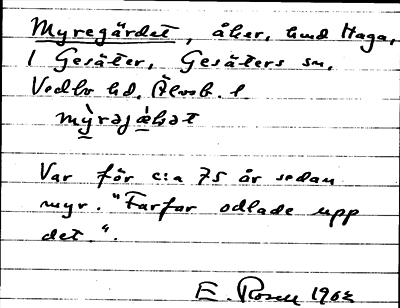 Myregärdet, åker, hmd Haga,
1 Gesäter, Gesäters sn,
Vedbo hd, Älvsb. l.
Var för c:a 75 år sedan
myr. "Farfar odlade upp
det.".
E. Rosell 1962